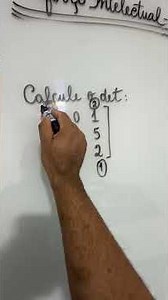 Intelectual
Calcule o det:
②
0 1
5
2
①